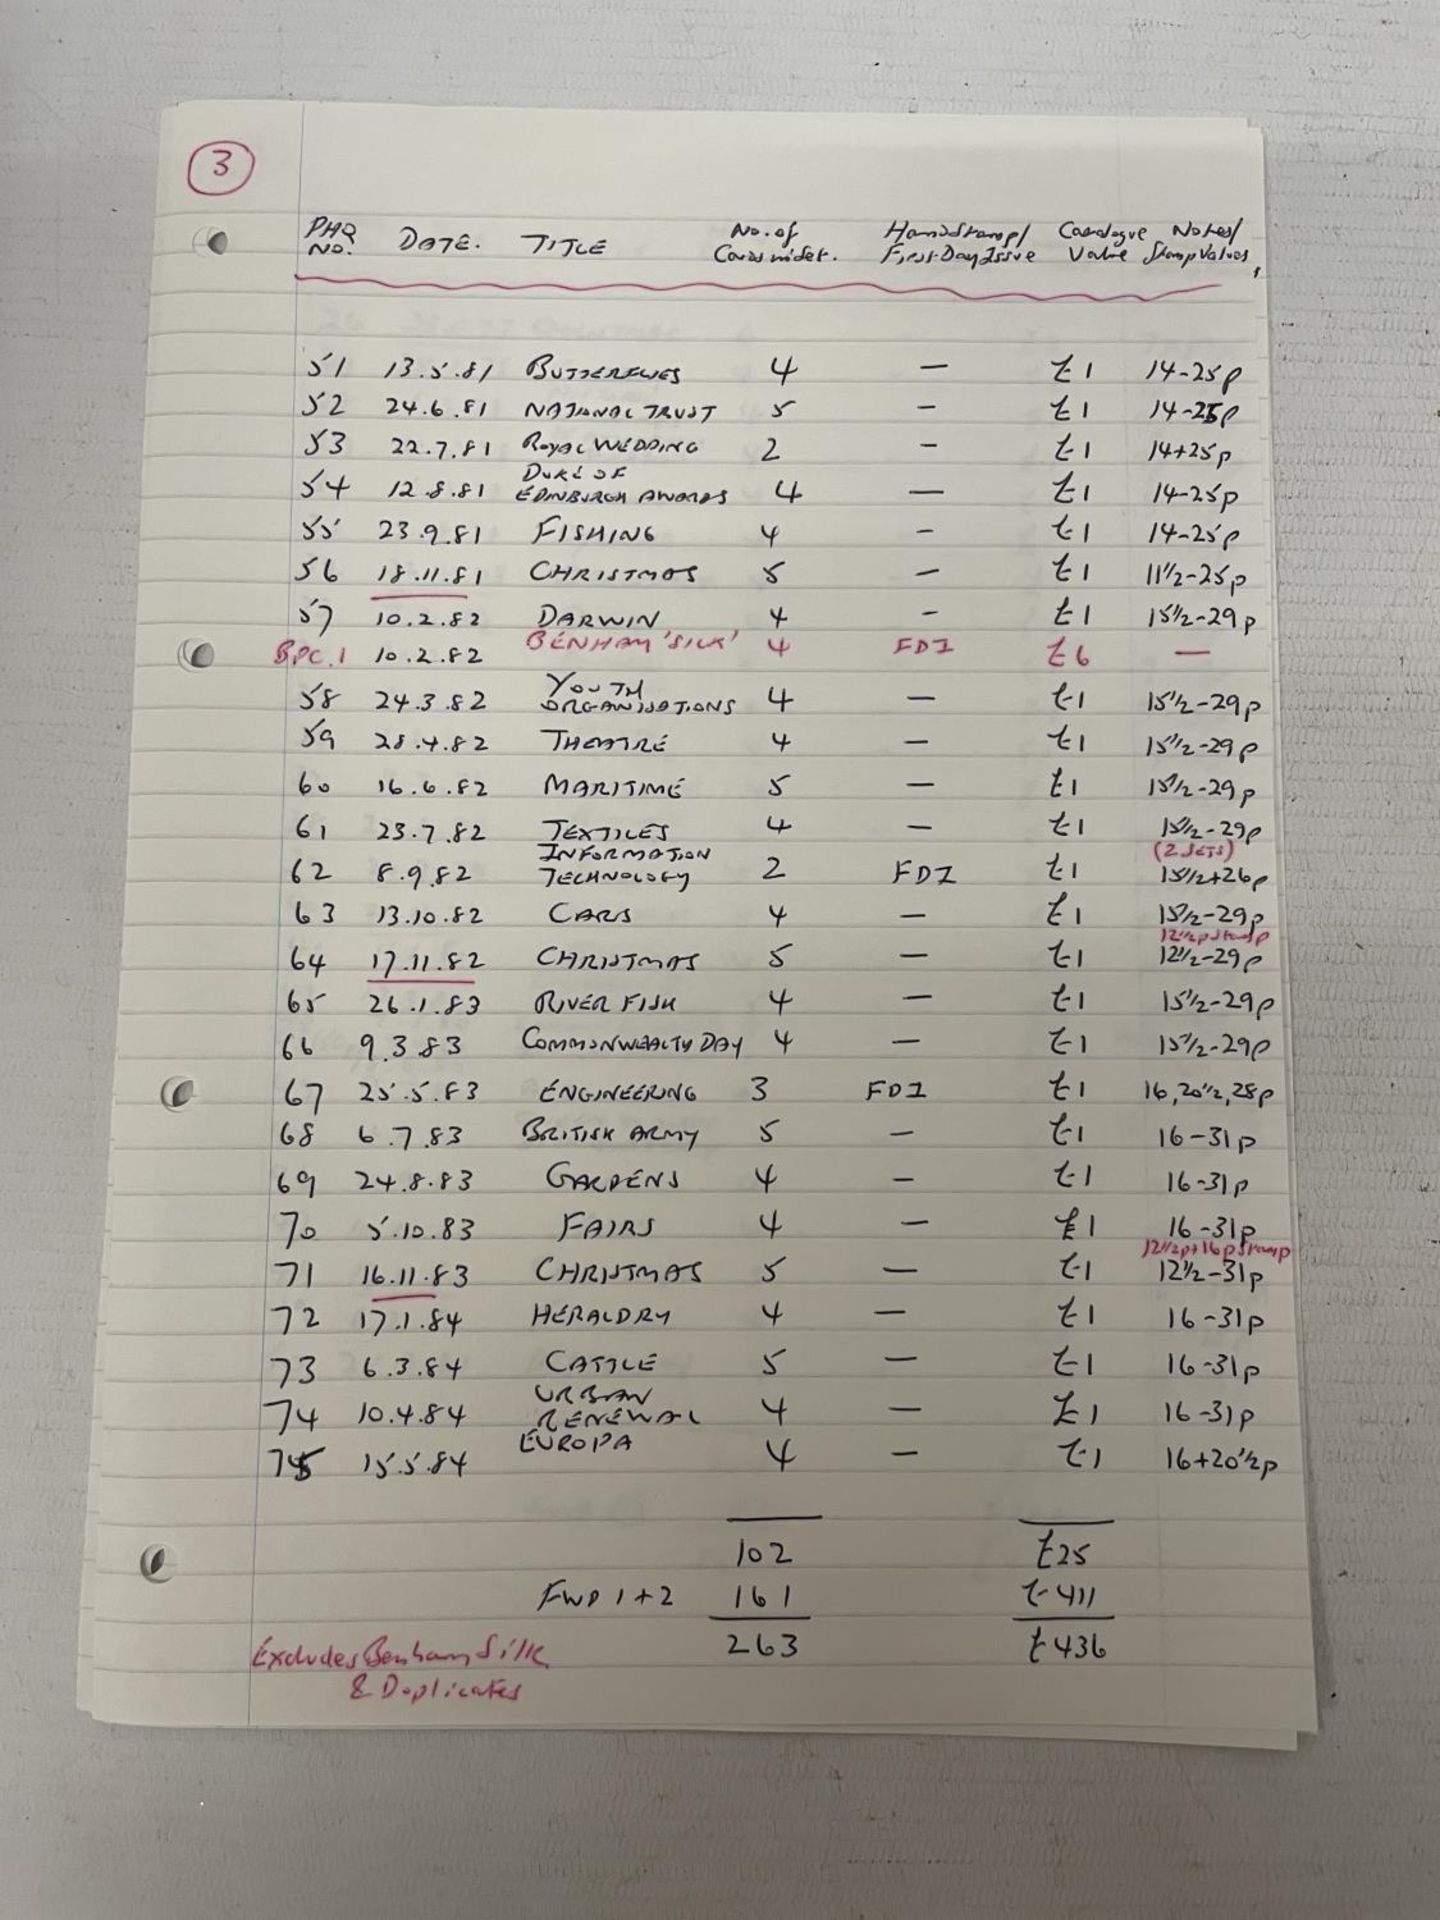 3
PHQ No. DATE. TITLE No. of Cards in Set. Handstamp/ First Day Issue Catalogue Value Notes/ Stamp Values
51 13.5.81 BUTTERFLIES 4 — £1 14-25p
52 24.6.81 NATIONAL TRUST 5 — £1 14-25p
53 22.7.81 ROYAL WEDDING 2 — £1 14+25p
54 12.8.81 DUKE OF EDINBURGH AWARDS 4 — £1 14-25p
55 23.9.81 FISHING 4 — £1 14-25p
56 18.11.81 CHRISTMAS 5 — £1 11½-25p
57 10.2.82 DARWIN 4 — £1 15½-29p
BPC.1 10.2.82 BENHAM 'SILK' 4 FDI £6 —
58 24.3.82 YOUTH ORGANISATIONS 4 — £1 15½-29p
59 28.4.82 THEATRE 4 — £1 15½-29p
60 16.6.82 MARITIME 5 — £1 15½-29p
61 23.7.82 TEXTILES 4 — £1 15½-29p
(2 SETS)
62 8.9.82 INFORMATION TECHNOLOGY 2 FDI £1 15½+26p
63 13.10.82 CARS 4 — £1 15½-29p
12½p stamp
64 17.11.82 CHRISTMAS 5 — £1 12½-29p
65 26.1.83 RIVER FISH 4 — £1 15½-29p
66 9.3.83 COMMONWEALTH DAY 4 — £1 15½-29p
67 25.5.83 ENGINEERING 3 FDI £1 16, 20½, 28p
68 6.7.83 BRITISH ARMY 5 — £1 16-31p
69 24.8.83 GARDENS 4 — £1 16-31p
70 5.10.83 FAIRS 4 — £1 16-31p
12½p+16p stamp
71 16.11.83 CHRISTMAS 5 — £1 12½-31p
72 17.1.84 HERALDRY 4 — £1 16-31p
73 6.3.84 CATTLE 5 — £1 16-31p
74 10.4.84 URBAN RENEWAL 4 — £1 16-31p
75 15.5.84 EUROPA 4 — £1 16+20½p
102 £25
FWD 1+2 161 £411
263 £436
Excludes Benham Silk
& Duplicates